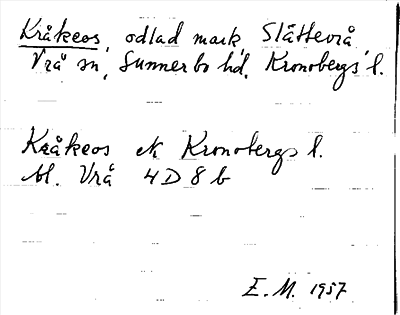 Kråkeos, odlad mark, Slättevrå,
Vrå sn, Sunnerbo hd, Kronobergs l.
Kråkeos ek Kronobergs l.
bl. Vrå 4D 8b
E.M. 1957